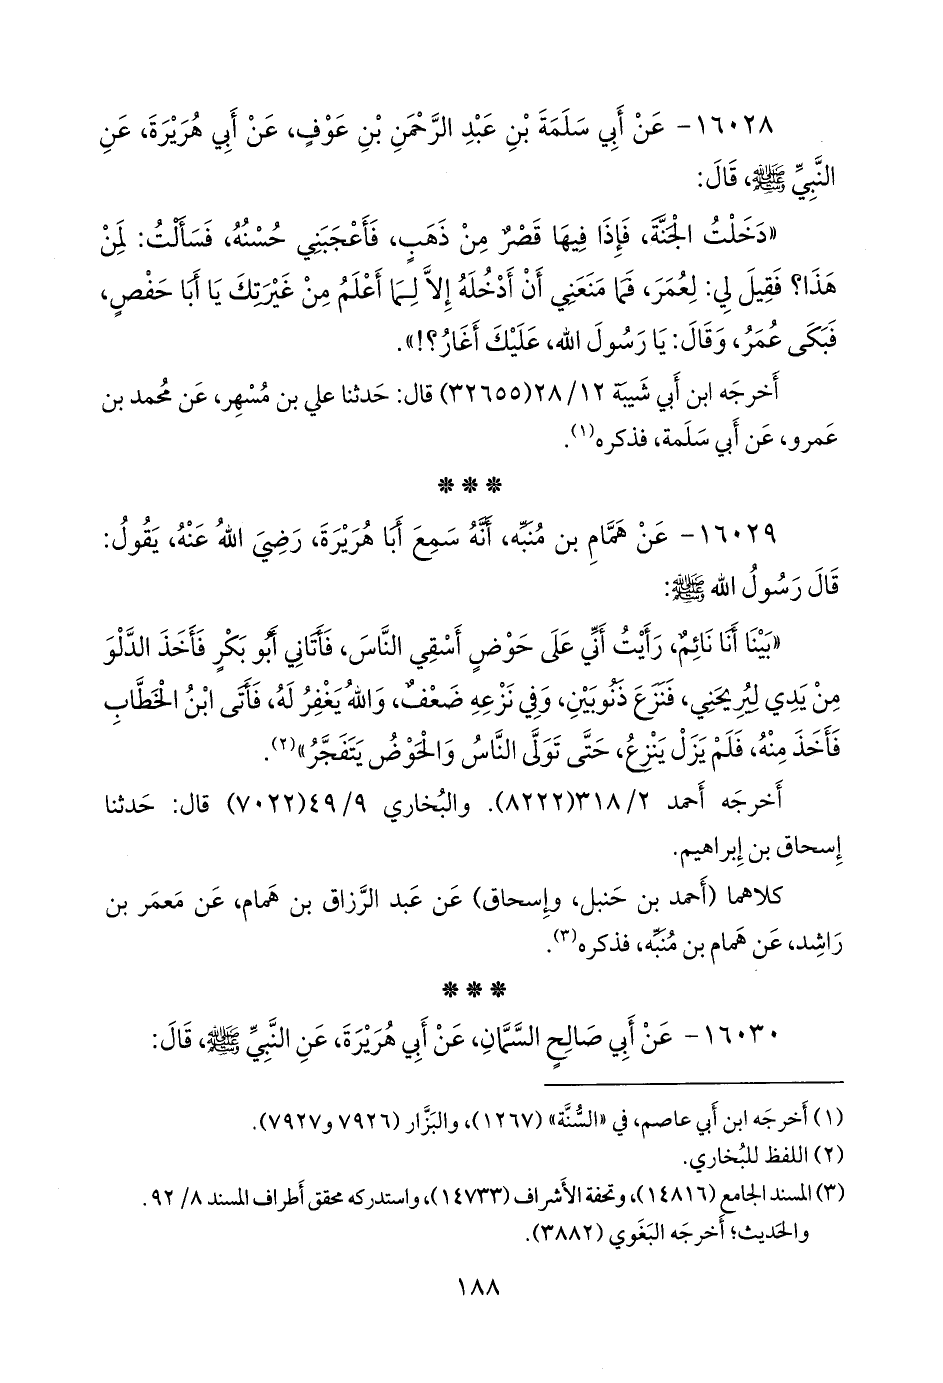 ١٦٠٢٨- عَنْ أَبِي سَلَمَةَ بْنِ عَبْدِ الرَّحْمَنِ بْنِ عَوْفٍ، عَنْ أَبِي هُرَيْرَةَ، عَنِ
النَّبِيِّ ﷺ، قَالَ:
«دَخَلْتُ الْجَنَّةَ، فَإِذَا فِيهَا قَصْرٌ مِنْ ذَهَبٍ، فَأَعْجَبَنِي حُسْنُهُ، فَسَأَلْتُ: لِمَنْ
هَذَا؟ فَقِيلَ لِي: لِعُمَرَ، فَمَا مَنَعَنِي أَنْ أَدْخُلَهُ إِلاَّ لِمَا أَعْلَمُ مِنْ غَيْرَتِكَ يَا أَبَا حَفْصٍ،
فَبَكَى عُمَرُ، وَقَالَ: يَا رَسُولَ الله، عَلَيْكَ أَغَارُ؟!».
أَخرجَه ابن أَبي شَيبَة ١٢/ ٢٨(٣٢٦٥٥) قال: حَدثنا علي بن مُسْهِر، عَن مُحمد بن
عَمرو، عَن أَبي سَلَمة، فذكره(١).
* * *
١٦٠٢٩- عَنْ هَمَّامِ بن مُنَبِّه، أَنَّهُ سَمِعَ أَبَا هُرَيْرَةَ، رَضِيَ اللهُ عَنْهُ، يَقُولُ:
قَالَ رَسُولُ الله ﷺ:
«بَيْنَا أَنَا نَائِمٌ، رَأَيْتُ أَنِّي عَلَى حَوْضٍ أَسْقِي النَّاسَ، فَأَتَانِي أَبُو بَكْرٍ فَأَخَذَ الدَّلْوَ
مِنْ يَدِي لِيُرِيحَنِي، فَنَزَعَ ذَنُوبَيْنِ، وَفِي نَزْعِهِ ضَعْفٌ، وَاللهُ يَغْفِرُ لَهُ، فَأَتَى ابْنُ الْخَطَّابِ
فَأَخَذَ مِنْهُ، فَلَمْ يَزَلْ يَنْزِعُ، حَتَّى تَوَلَّى النَّاسُ وَالْحَوْضُ يَتَفَجَّرُ»(٢).
أَخرجَه أَحمد ٢/ ٣١٨(٨٢٢٢). والبُخاري ٩/ ٤٩(٧٠٢٢) قال: حَدثنا
إِسحاق بن إِبراهيم.
كلاهما (أَحمد بن حَنبل، وإِسحاق) عَن عَبد الرَّزاق بن هَمام، عَن مَعمَر بن
رَاشِد، عَن هَمام بن مُنَبِّه، فذكره(٣).
* * *
١٦٠٣٠- عَنْ أَبِي صَالِحٍ السَّمَّانِ، عَنْ أَبِي هُرَيْرَةَ، عَنِ النَّبِيِّ ﷺ، قَالَ:
(١) أَخرجَه ابن أَبي عاصم، في «السُّنَّة» (١٢٦٧)، والبَزَّار (٧٩٢٦ و٧٩٢٧).
(٢) اللفظ للبُخاري.
(٣) المسند الجامع (١٤٨١٦)، وتحفة الأَشراف (١٤٧٣٣)، واستدركه محقق أَطراف المسند ٨/ ٩٢.
والحَديث؛ أَخرجَه البَغَوي (٣٨٨٢).
١٨٨